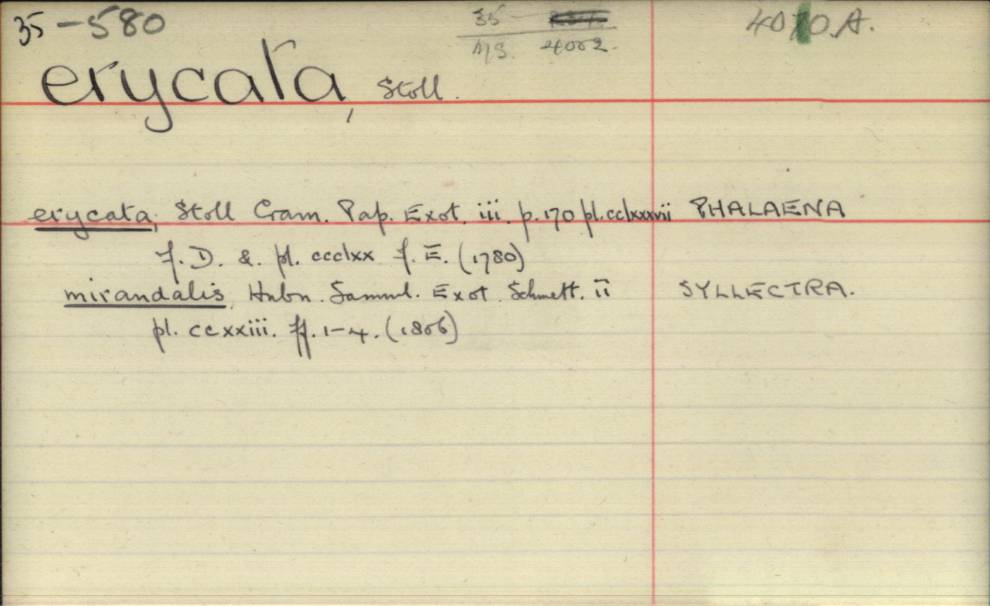 35-580
35
MS. 4002.
40 0.A.
erycata, Stoll.
erycata, Stoll Cram. Pap. Exot. iii. p. 170 pl. cclxxxvii PHALAENA
f. D. & pl. ccclxx f. E. (1780)
mirandalis, Hubn. Samml. Exot. Schmett. ii SYLLECTRA.
pl. ccxxiii. ff. 1-4. (1806)